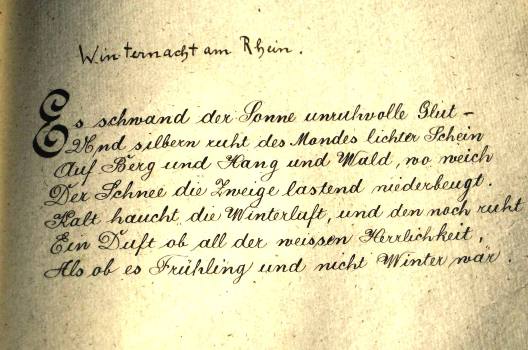 Winternacht am Rhein.
Es schwand der Sonne unruhvolle Glut –
Und silbern ruht des Mondes lichter Schein
Auf Berg und Hang und Wald, wo weich
Der Schnee die Zweige lastend niederbeugt.
Kalt haucht die Winterluft, und den noch ruht
Ein Duft ob all der weissen Herrlichkeit,
Als ob es Frühling und nicht Winter war.